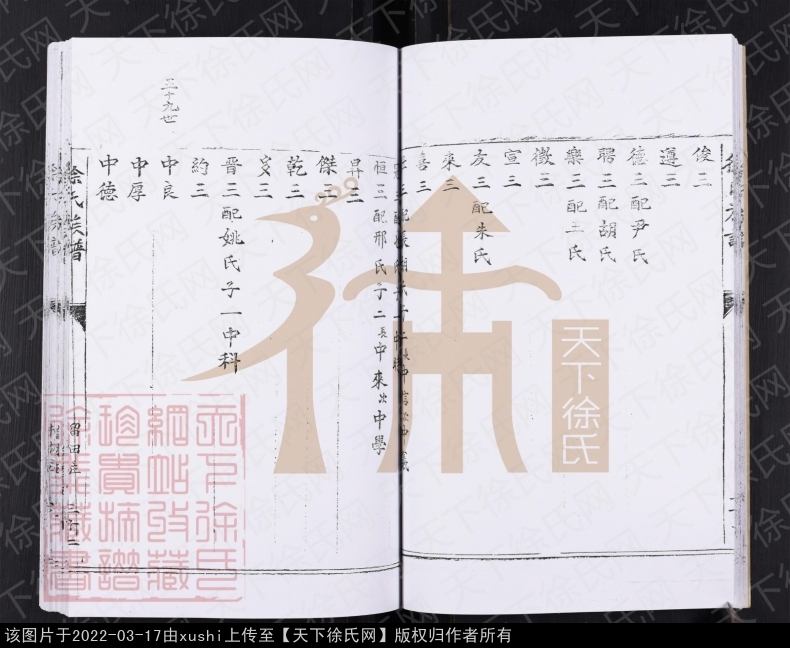 俊三
遵三
德三配尹氏
聘三配胡氏
樂三配王氏
徵三
宣三
友三配朱氏
來三
喜三
恒三配邢氏子二長中來次中學
昇三
傑三
乾三
三
晋三配姚氏子一中科
約三
三十九世
中良
中厚
中德
徐氏族譜
留田庄
天下徐氏
天下徐氏网
该图片于2022-03-17由xushi上传至【天下徐氏网】版权归作者所有